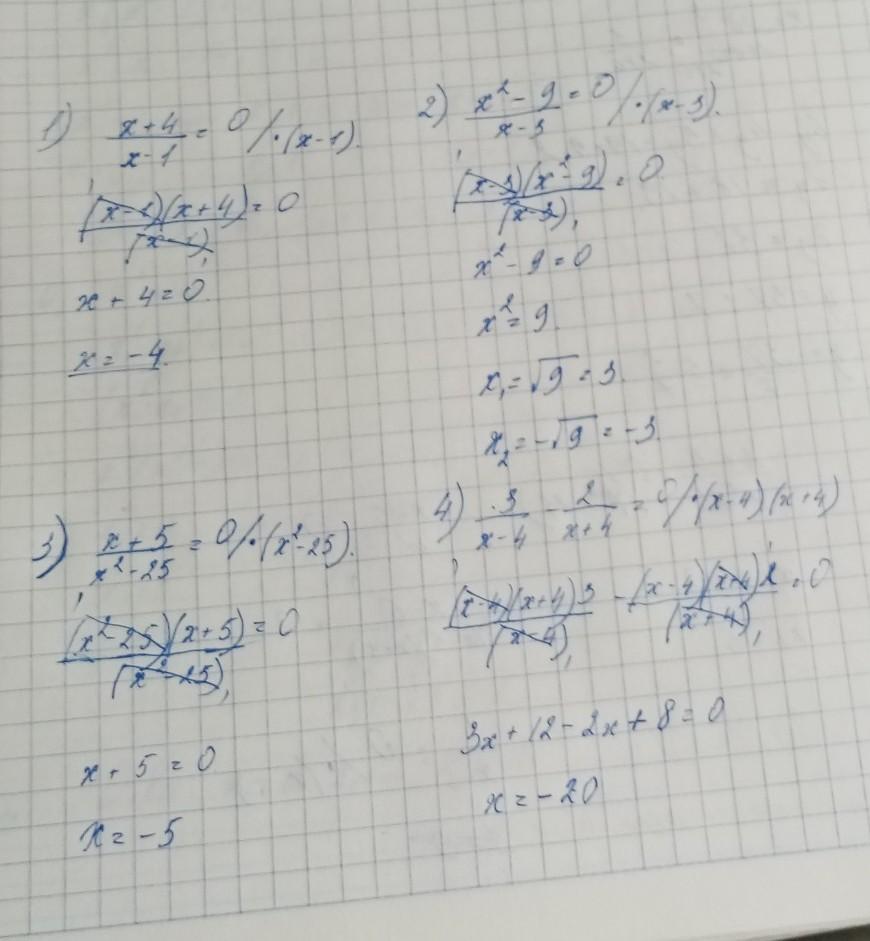 1) (x+4)/(x-1) = 0 /·(x-1).
((x-1)(x+4))/(x-1) = 0
x + 4 = 0.
x = -4.
2) (x²-9)/(x-3) = 0 /·(x-3).
((x-3)(x²-9))/(x-3) = 0
x² - 9 = 0
x² = 9.
x₁ = √9 = 3.
x₂ = -√9 = -3.
3) (x+5)/(x²-25) = 0 /·(x²-25).
((x²-25)(x+5))/(x²-25) = 0
x + 5 = 0
x = -5
4) 3/(x-4) - 2/(x+4) = 0 /·(x-4)(x+4)
((x-4)(x+4)3)/(x-4) - ((x-4)(x+4)2)/(x+4) = 0
3x + 12 - 2x + 8 = 0
x = -20